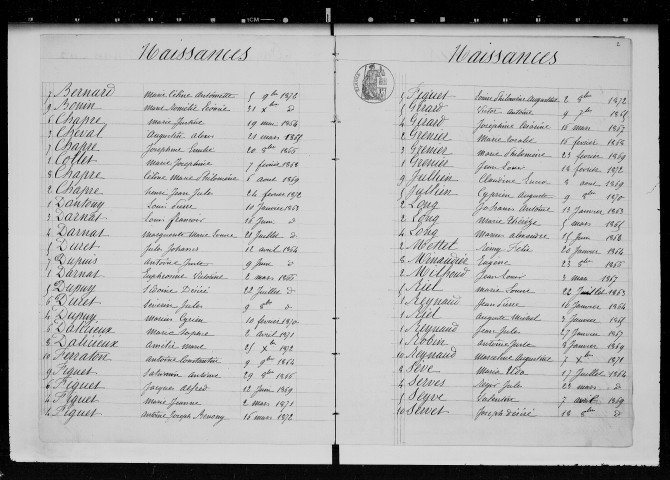 Naissances
7 Bernard Marie Céline Antoinette 5 9bre 1872
9 Bonin Marie 31 Xbre d
6 Chapre Marie Justine 19 mai 1864
3 Cheval Augustin 21 mars 1865
7 Chapre Joséphine Emilie 20 8bre 1866
1 Collet Marie Joséphine 7 février 1868
8 Chapre Céline Marie Philomène 6 aout 1869
2 Chapre Jean Jules 24 février 1872
1 Dantony Louis Pierre 10 janvier 1863
3 Darnat Louis françois 26 Juin d
4 Darnat Marguerite Marie Louise 28 Juillet d
5 Duret Jules Johanes 12 avril 1864
7 Dupuis Antoine Jules 9 Juin d
1 Darnat Euphrosine Victoire 2 mars 1866
5 Dupuy Sidonie Désiré 22 Juillet d
6 Duret Séverin Jules 9 8bre d
4 Dupuy Marius 10 février 1870
6 Dalicieux Marie Sophie 8 avril 1871
8 Dalicieux Amélie Marie 25 Xbre 1872
10 Ferraton Antoine Constantin 9 9bre 1864
9 Fiquet antoine 29 8bre 1866
6 Fiquet Jacques alfred 12 Juin 1869
4 Fiquet Marie Jeanne 2 mars 1871
4 Fiquet Antoine Joseph 16 mars 1872
Naissances
2
5 Fiquet Philomène Augustine 2 8bre 1872
5 Girard Victor Antoine 9 7bre 1865
4 Girard Joséphine 16 mars 1867
2 Grenier Marie 15 février 1868
3 Grenier Marie Philomène 23 février 1869
1 Grenier Jean Louis 18 février 1872
9 Jullien Claudine 8 aout 1869
7 Jullien Cyprien Auguste 9 8bre 1870
2 Long Johanes Antoine 13 Janvier 1863
2 Long Marie Thérèze 5 mars 1865
4 Long Marius alexandre 15 Juin 1868
2 Mottet Rémy Félix 20 Janvier 1864
8 Minaudier Eugène 23 8bre 1866
2 Jean Louis 3 mars 1867
5 Riet Marie Louise 22 Juillet 1863
1 Reynaud Jean Pierre 16 Janvier 1864
1 Riet Auguste Michel 3 Janvier 1865
1 Reynaud Jean Jules 27 Janvier 1867
1 Robin Antoine Jules 8 Janvier 1869
10 Reynaud Marceline Augustine 1 Xbre 1871
8 Sève Maria 17 Juillet 1864
4 Serves Jules 23 mars d
5 Seyve Valentin 7 avril 1869
10 Servet Joseph Désiré 18 8bre d